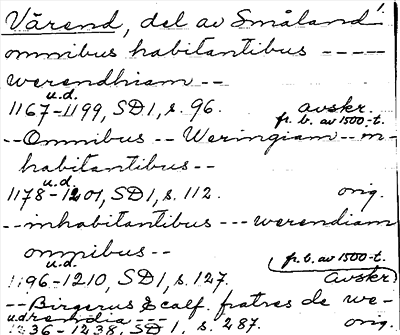 Värend, del av Småland!
omnibus habitantibus -----
werendhiam --
u.d.
1167-1199, SD1, s. 96. avskr.
fr. b. av 1500-t.
--Omnibus -- Weringiam--in-
habitantibus--
u.d.
1178-1201, SD1, s. 112. orig.
--inhabitantibus --- werendiam
omnibus--
u.d. fr. b. av 1500-t.
1196-1210, SD1, s. 127, avskr
--Birgerus & calf. fratres de we-
u.d. rendia ---
1236-1238, SD1, s. 287. orig.